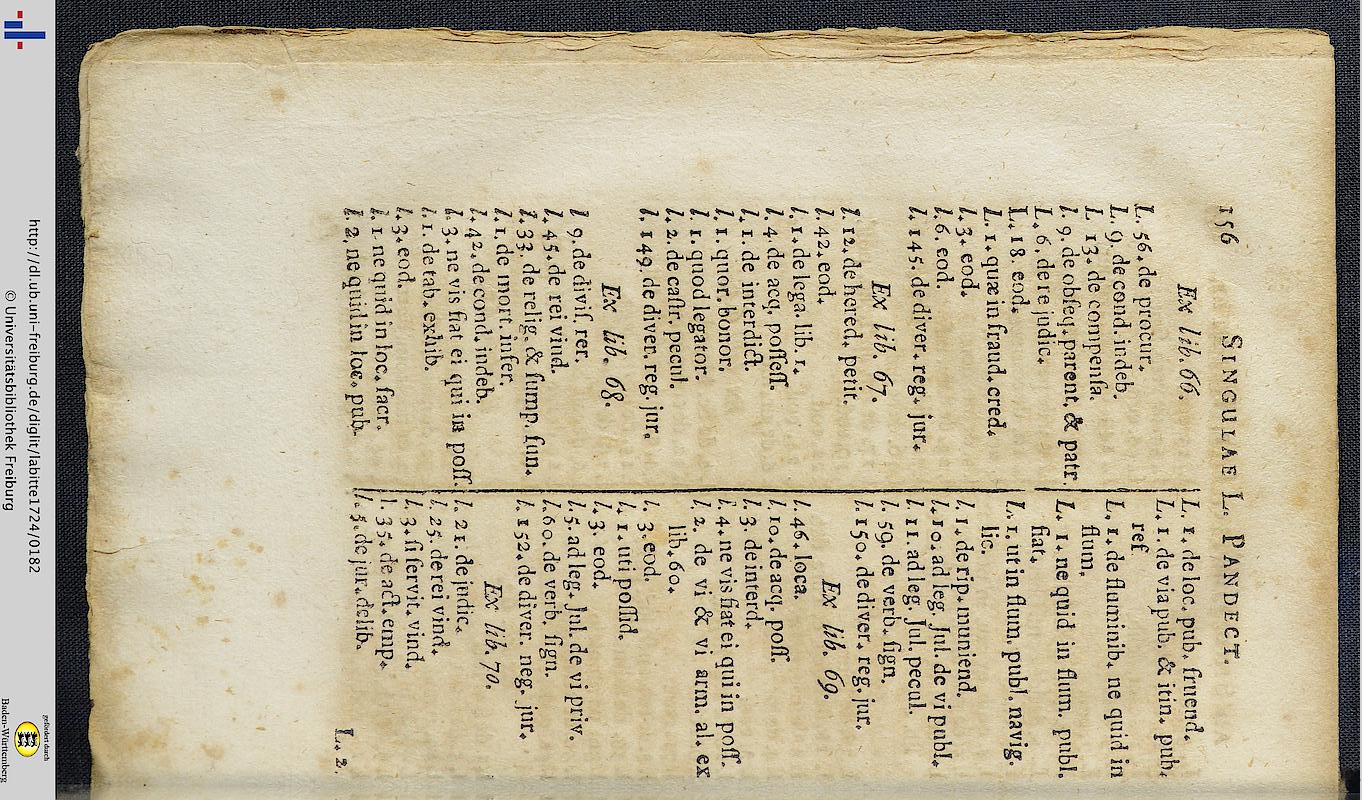 156 SINGULAE L. PANDECT.
Ex lib. 66.
L. 56. de procur.
L. 9. de cond. indeb.
L. 13. de compensa.
l. 9. de obseq. parent. & patr.
L. 6. de re judic.
L. 18. eod.
L. 1. quæ in fraud. cred.
l. 3. eod.
l. 6. eod.
l. 145. de diver. reg. jur.
Ex lib. 67.
l. 12. de hered. petit.
l. 42. eod.
l. 1. de lega. lib. 1.
l. 4. de acq. possess.
l. 1. de interdict.
l. 1. quor. bonor.
l. 1. quod legator.
l. 2. de castr. pecul.
l. 149. de diver. reg. jur.
Ex lib. 68.
l 9. de divis. rer.
l. 45. de rei vind.
l. 33. de relig. & sump. fun.
l. 1. de mort. infer.
l. 42. de cond. indeb.
l. 3. ne vis fiat ei qui in poss.
l. 1. de tab. exhib.
l. 3. eod.
l. 1. ne quid in loc. sacr.
l. 2. ne quid in loc. pub.
L. 1. de loc. pub. fruend.
L. 1. de via pub. & itin. pub.
ref.
L. 1. de fluminib. ne quid in
flum.
L. 1. ne quid in flum. publ.
fiat.
L. 1. ut in flum. publ. navig.
lic.
l. 1. de rip. muniend.
l. 10. ad leg. Jul. de vi publ.
l. 11 ad leg. Jul. pecul.
l. 59. de verb. sign.
l. 150. de diver. reg. jur.
Ex lib. 69.
l. 46. loca.
l. 10. de acq. poss.
l. 3. de interd.
l. 4. ne vis fiat ei qui in poss.
l. 2. de vi & vi arm. al. ex
lib. 60.
l. 3. eod.
l. 1. uti possid.
l. 3. eod.
l. 5. ad leg. Jul. de vi priv.
l. 60. de verb. sign.
l. 152. de diver. neg. jur.
Ex lib. 70.
l. 21. de judic.
l. 25. de rei vind.
l. 3. si servit. vind.
l. 35. de act. emp.
l. 5. de jur. delib.
L. 2.
http://dl.ub.uni-freiburg.de/diglit/labitte1724/0182
© Universitätsbibliothek Freiburg
gefördert durch
Baden-Württemberg